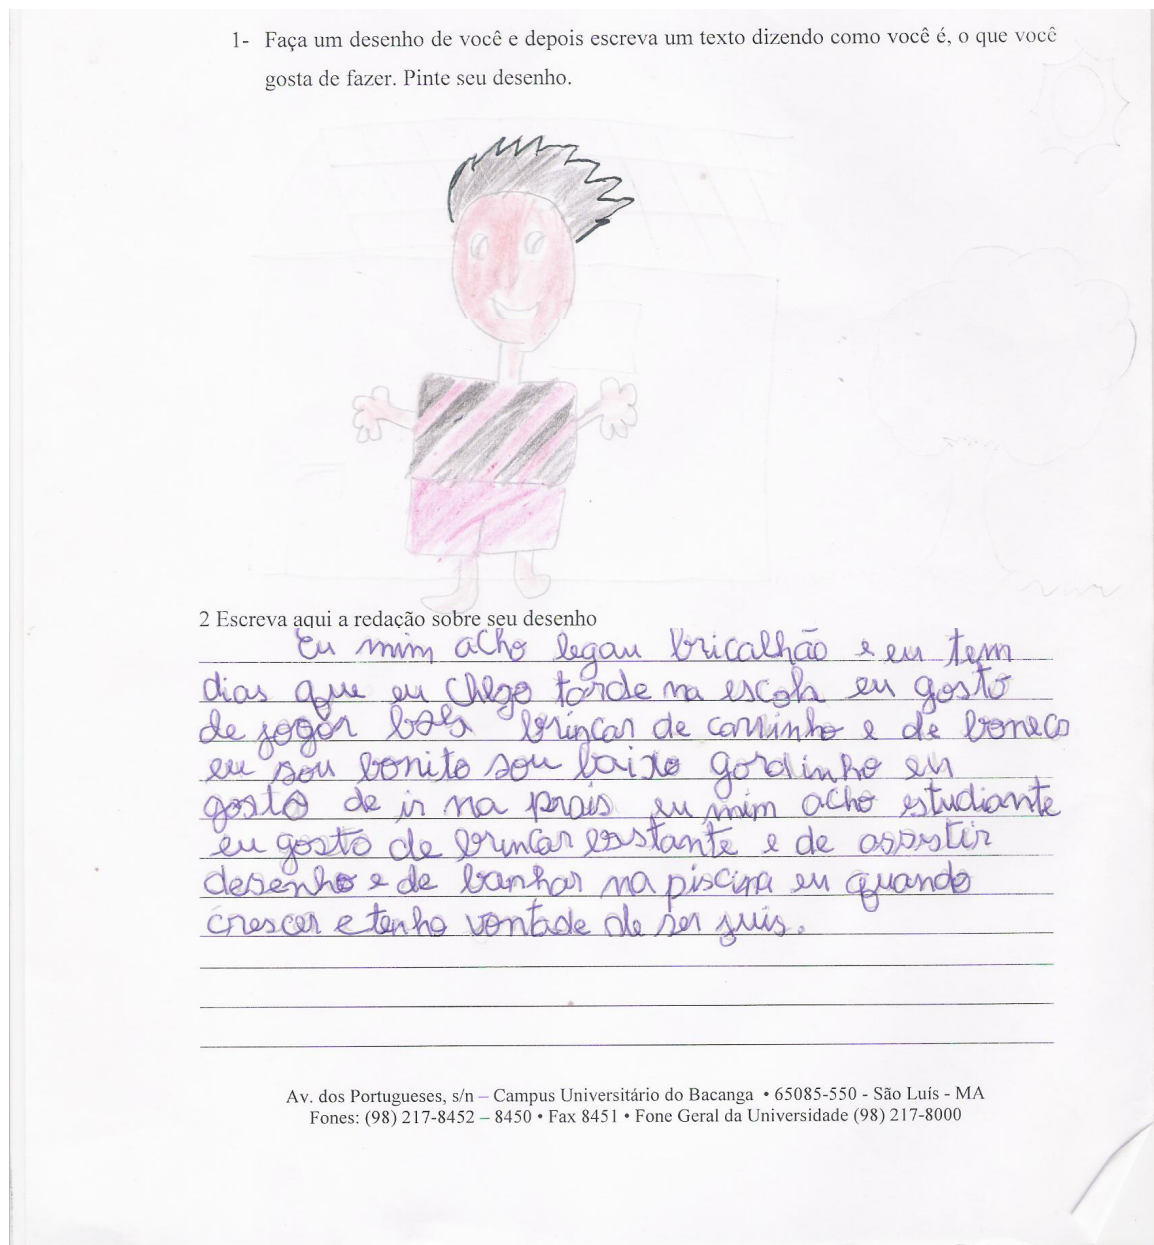 1- Faça um desenho de você e depois escreva um texto dizendo como você é, o que você
gosta de fazer. Pinte seu desenho.
2 Escreva aqui a redação sobre seu desenho
Eu mim acho legau bricalhão e eu tem
dias que eu chego tarde na escola eu gosto
de jogar bola brincar de carrinho e de boneco
eu sou bonito sou baixo gordinho eu
gosto de ir na praia eu mim acho estudiante
eu gosto de brincar bastante e de assistir
desenho e de banhar na piscina eu quando
crescer e tenho vontade de ser juis.
Av. dos Portugueses, s/n – Campus Universitário do Bacanga • 65085-550 - São Luís - MA
Fones: (98) 217-8452 – 8450 • Fax 8451 • Fone Geral da Universidade (98) 217-8000